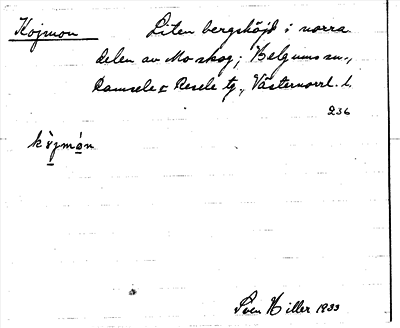 Kojmon Liten bergshöjd i norra
delen av Mo skog; Helgums sn.,
Ramsele & Resele tg., Västernorrl. l.
236
Sven Hiller 1933